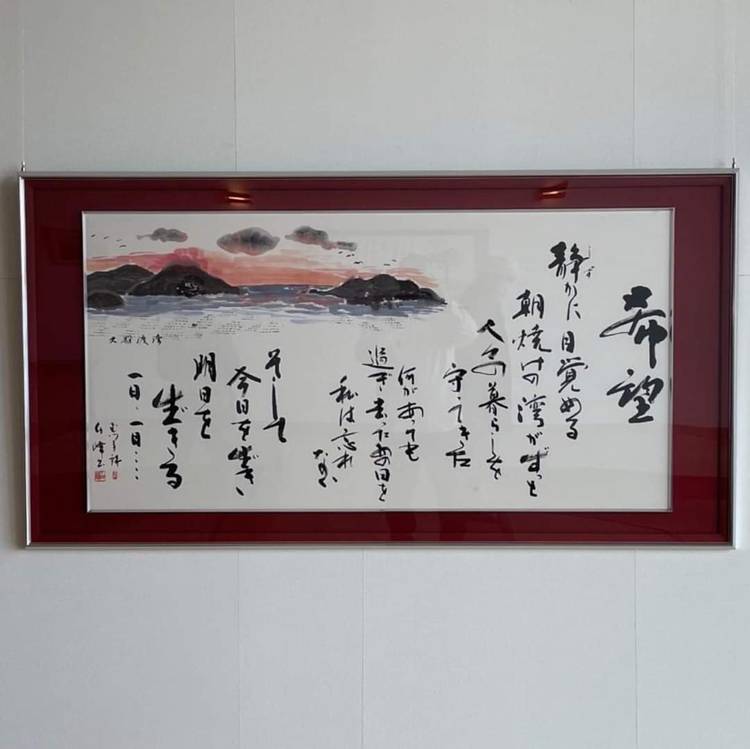 希望
しず
静かに目覚める
朝焼けの湾がずっと
人々の暮らしを
守ってきた
何があっても
過ぎ去った日を
私は忘れ
ない
そして
今日を生き
明日を
生きる
一日、一日....
大船渡湾